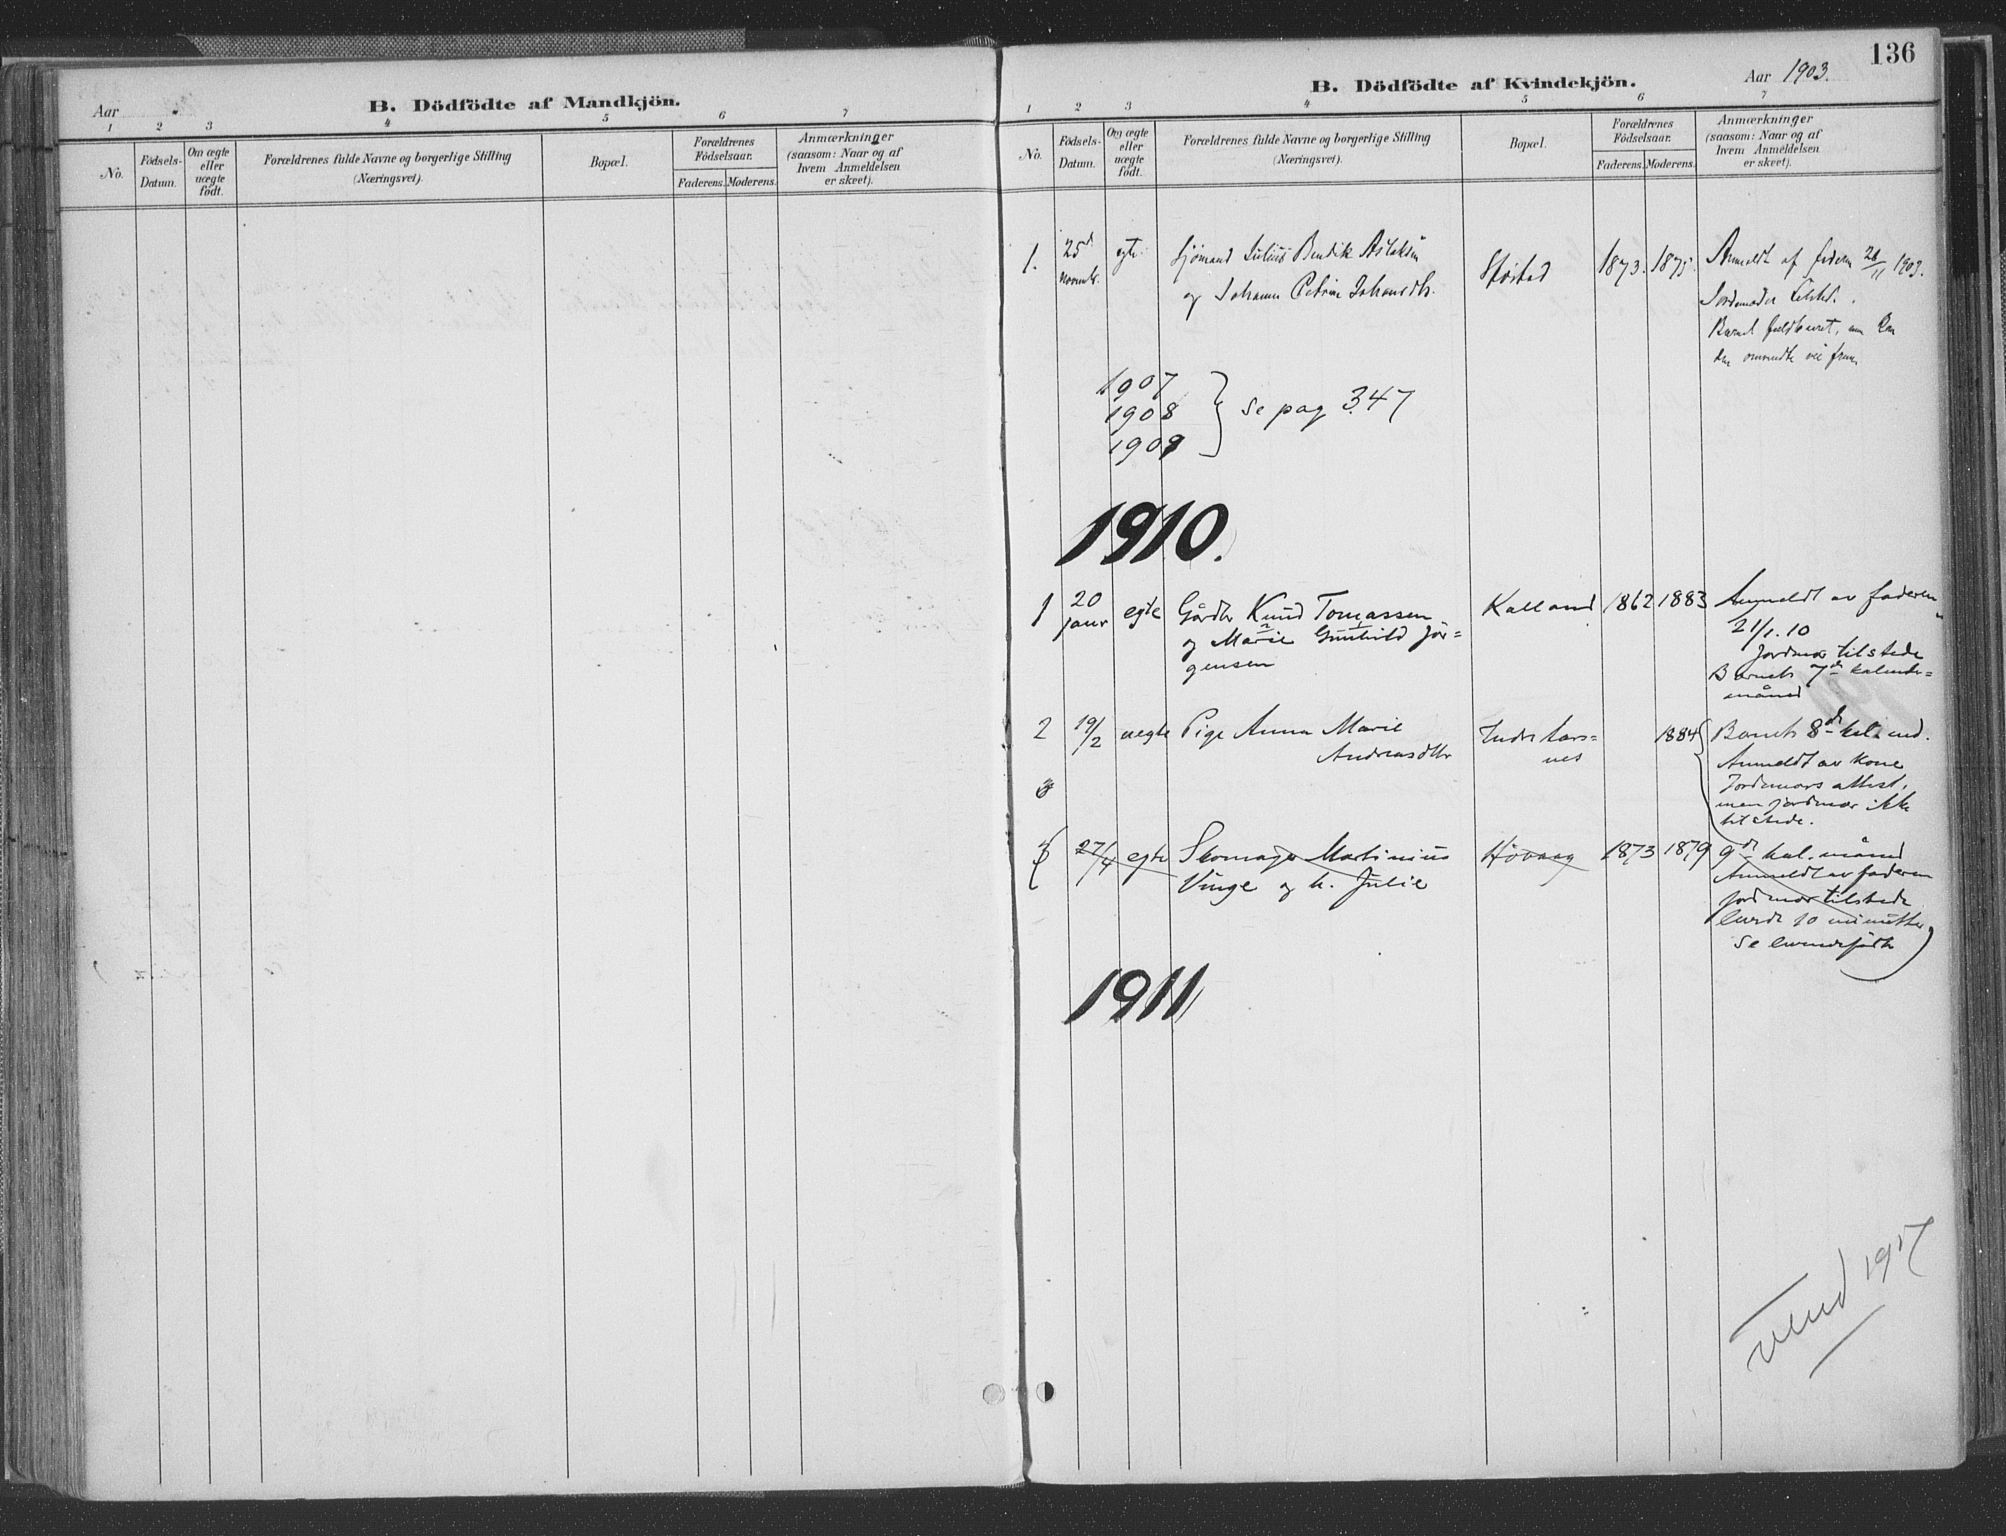 Aar
B. Dödfödte af Mandkjön.
1 2 3 4 5 6 7
No.
Födsels-
Datum.
Om ægte
eller
uægte
födt.
Forældrenes fulde Navne og borgerlige Stilling
(Næringsvei).
Bopæl.
Forældrenes
Födselsaar.
Faderens. Moderens.
Anmærkninger
(saasom: Naar og af
hvem Anmeldelsen
er skeet).
136
B. Dödfödte af Kvindekjön.
Aar 1903.
1 2 3 4 5 6 7
No.
Födsels-
Datum.
Om ægte
eller
uægte
födt.
Forældrenes fulde Navne og borgerlige Stilling
(Næringsvei).
Bopæl.
Forældrenes
Födselsaar.
Faderens. Moderens.
Anmærkninger
(saasom: Naar og af
hvem Anmeldelsen
er skeet).
1. 25d egte Sjömand Julius Bendik Aslaksen 1873. 1875. Anmeldt af faderen 1903.
novmb. og Johanne Petrine Johansdtr.
Jordemoder tilsted.
Barnet fuldbaaret,
1907
1908 } se pag 347
1909
1910.
1 20 egte Gårdbr Knud Tomassen Kalland 1862 1883 Anmeldt av faderen
janr og Marie Gunhild Jör=
gensen
21/1.10
Jordmor tilstede
Barnets 7de kalender=
måned
2 19/2 uegte Pige Anna Marie
Andreasdtr
Indre Aars=
nes
1884 Barnets 8de kal. md.
Anmeldt av kone
Jordemors attest,
men jordmor ikke
tilstede.
3
3 27/4 egte Skomager Martinius Hövaag 1873 1879 9de kal. måned
Vinge og h. Julie
Anmeldt av faderen
jordmor tilstede
levede 10 minutter
se levendefödte
1911
vend 1917